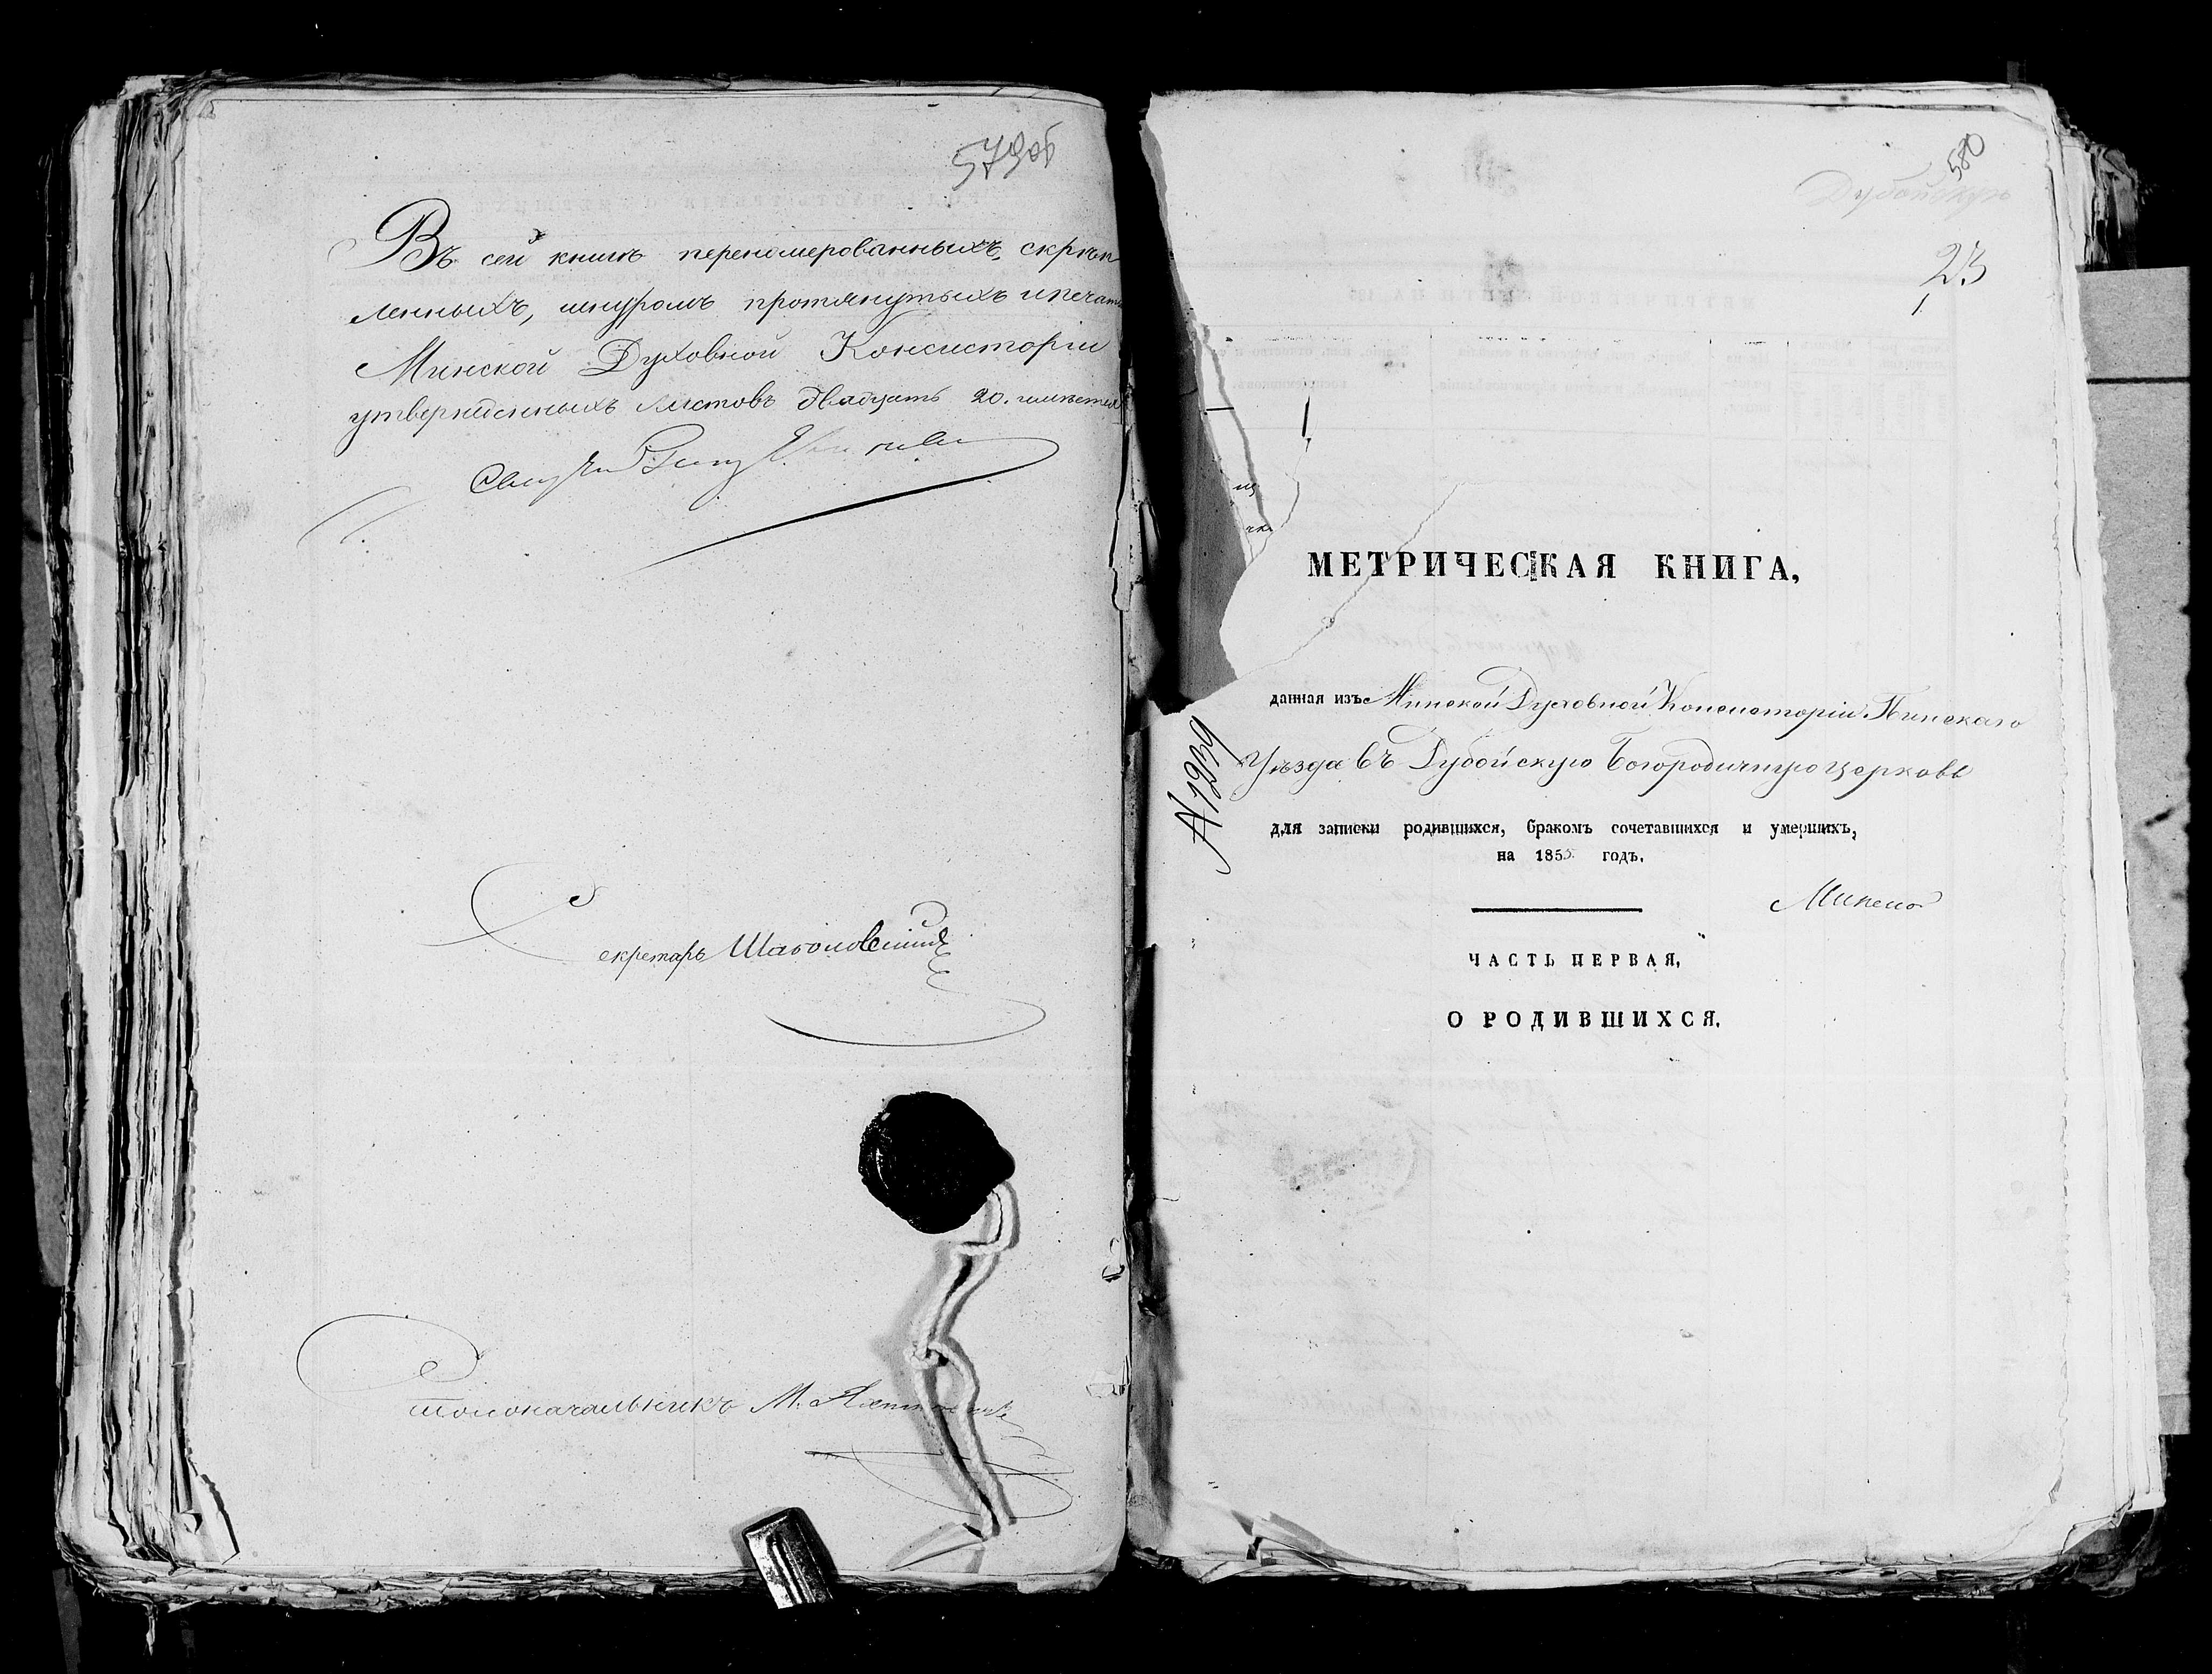 579об
Въ сей книгѣ перенумерованныхъ, скрѣп
ленныхъ, шнуромъ протянутыхъ и печат
Минской Духовной Консисторіи
утвержденныхъ листовъ двадцать 20. имѣется
Секретарь
Столоначальникъ М.
580
Дубойскую
23
1
МЕТРИЧЕСКАЯ КНИГА,
данная изъ Минской Духовной Консисторіи Пинскаго
Уѣзда въ Дубойскую Богородичную церковь
№1239
для записки родившихся, бракомъ сочетавшихся и умершихъ,
на 1855 годъ.
ЧАСТЬ ПЕРВАЯ,
О РОДИВШИХСЯ.